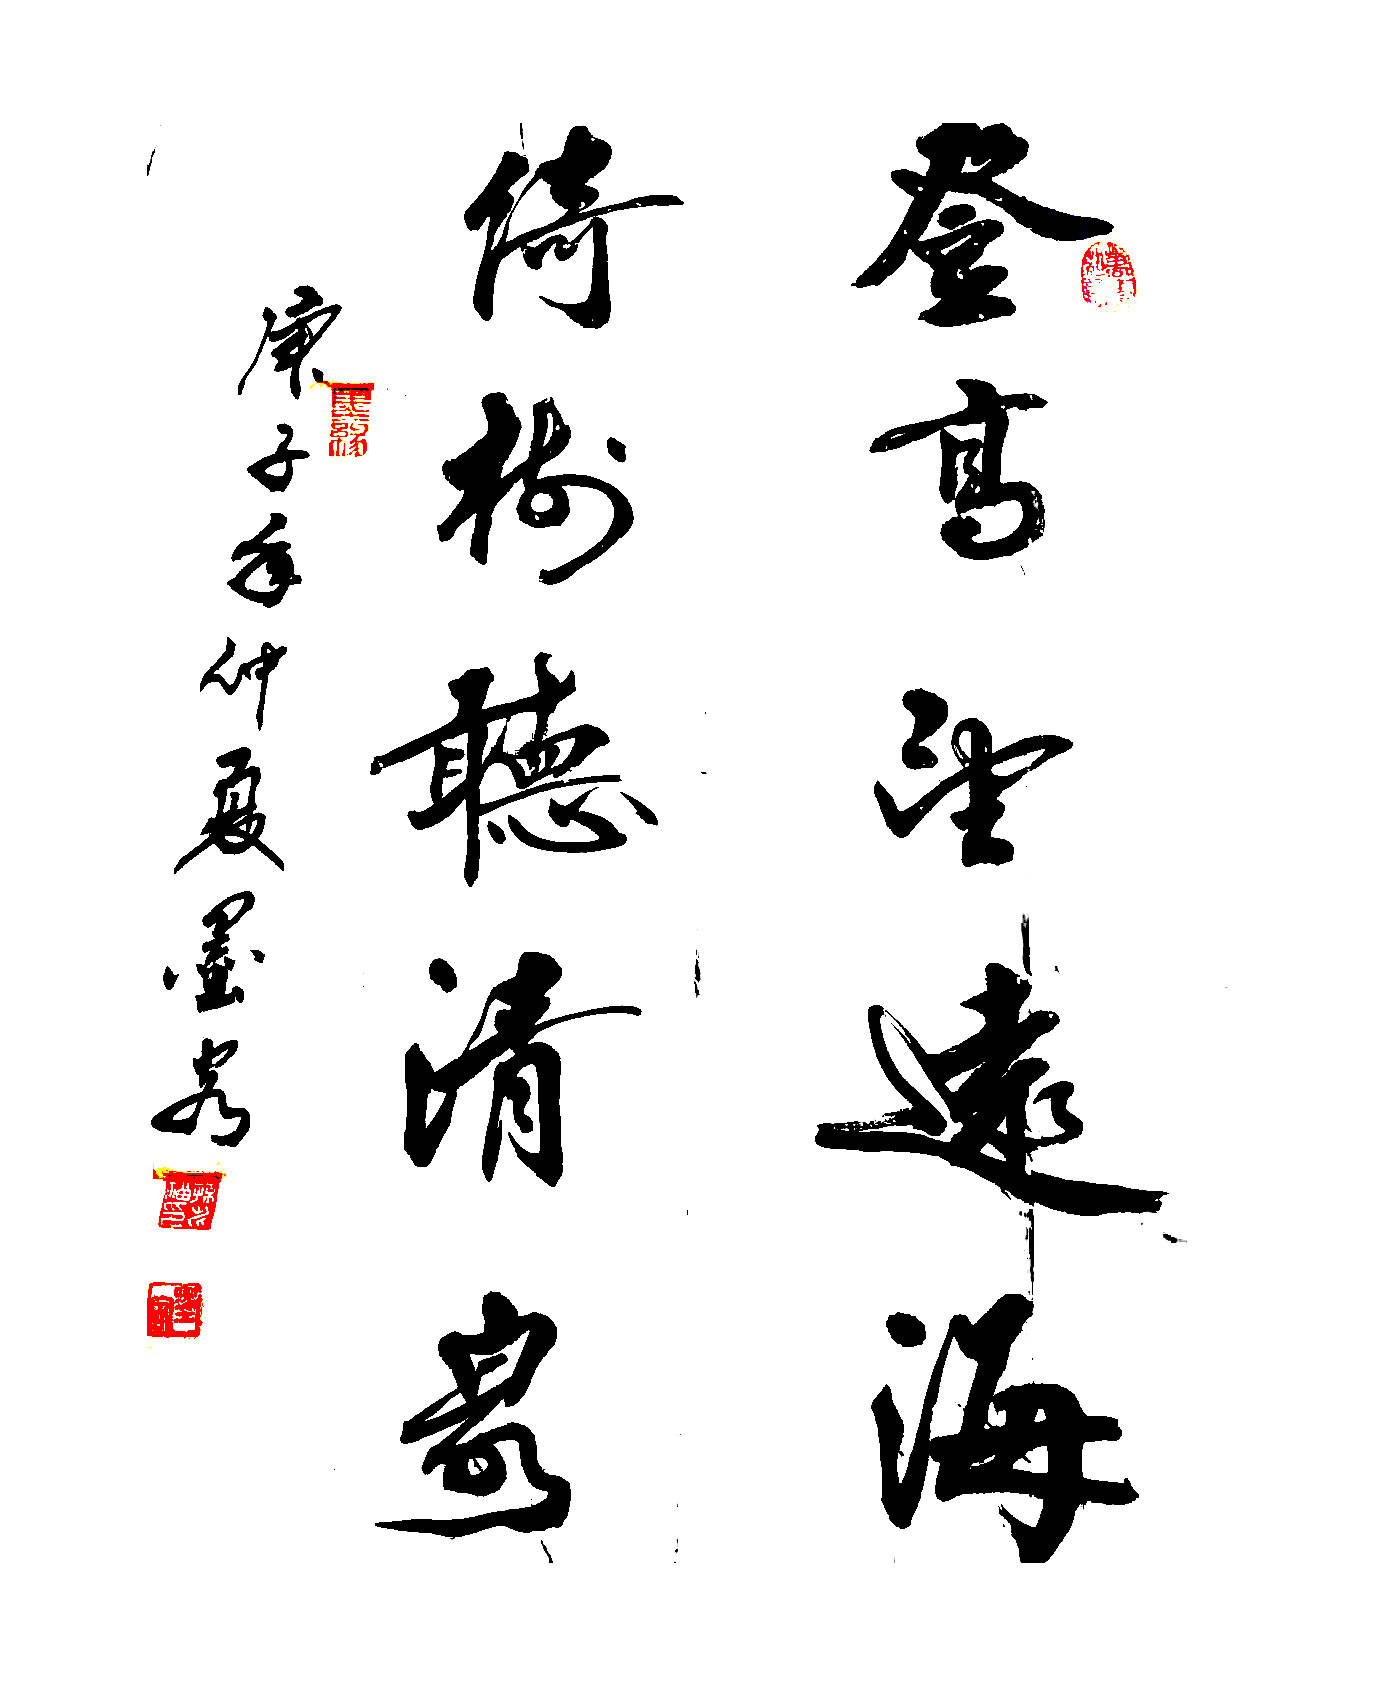 登高望遠海
倚樹聽清
庚子年仲夏墨客